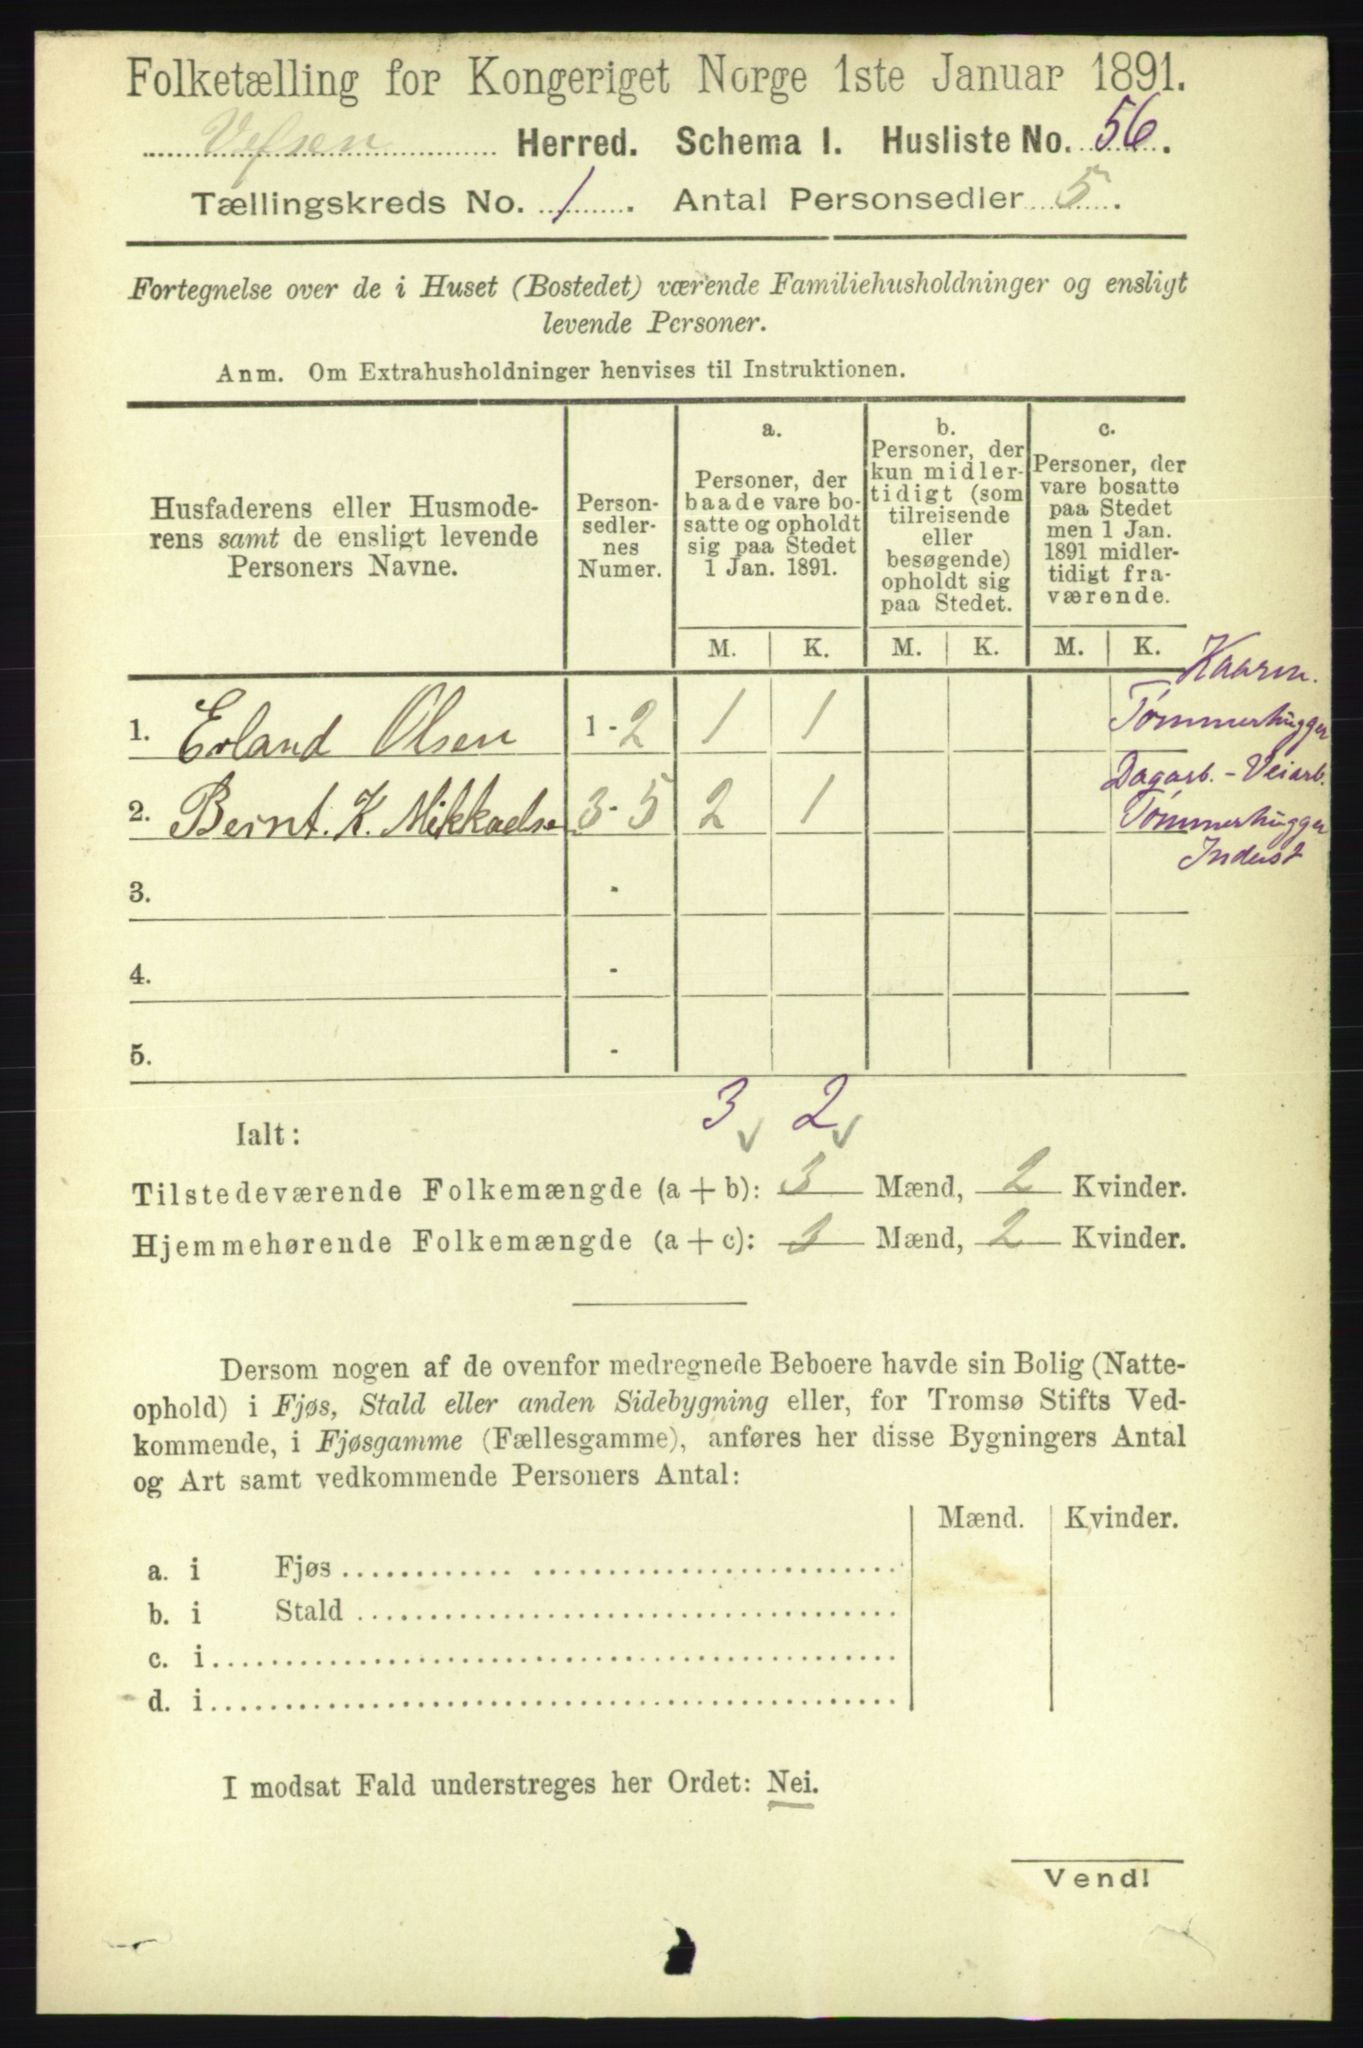 Folketælling for Kongeriget Norge 1ste Januar 1891.
Vefsen Herred. Schema I. Husliste No. 56.
Tællingskreds No. 1. Antal Personsedler 5.
Fortegnelse over de i Huset (Bostedet) værende Familiehusholdninger og ensligt
levende Personer.
Anm. Om Extrahusholdninger henvises til Instruktionen.
Husfaderens eller Husmode-
rens samt de ensligt levende
Personers Navne.
Person-
sedler-
nes
Numer.
a.
Personer, der
baade vare bo-
satte og opholdt
sig paa Stedet
1 Jan. 1891.
b.
Personer, der
kun midler-
tidigt (som
tilreisende
eller
besøgende)
opholdt sig
paa Stedet.
c.
Personer, der
vare bosatte
paa Stedet
men 1 Jan.
1891 midler-
tidigt fra-
værende.
M. K. M. K. M. K.
Kaarm.
1. Erland Olsen 1 - 2 1 1 Tømmerhugger
Dagarb. - Veiarb.
2. Bernt. K. Mikkaelse 3 - 5 2 1 Tømmerhugger
Inderst
3. -
4. -
5. -
3 2
Ialt:
Tilstedeværende Folkemængde (a + b): 3 Mænd, 2 Kvinder.
Hjemmehørende Folkemængde (a + c): 3 Mænd, 2 Kvinder.
Dersom nogen af de ovenfor medregnede Beboere havde sin Bolig (Natte-
ophold) i Fjøs, Stald eller anden Sidebygning eller, for Tromsø Stifts Ved-
kommende, i Fjøsgamme (Fællesgamme), anføres her disse Bygningers Antal
og Art samt vedkommende Personers Antal:
Mænd. Kvinder.
a. i Fjøs
b. i Stald
c. i
d. i
I modsat Fald understreges her Ordet: Nei.
Vend!